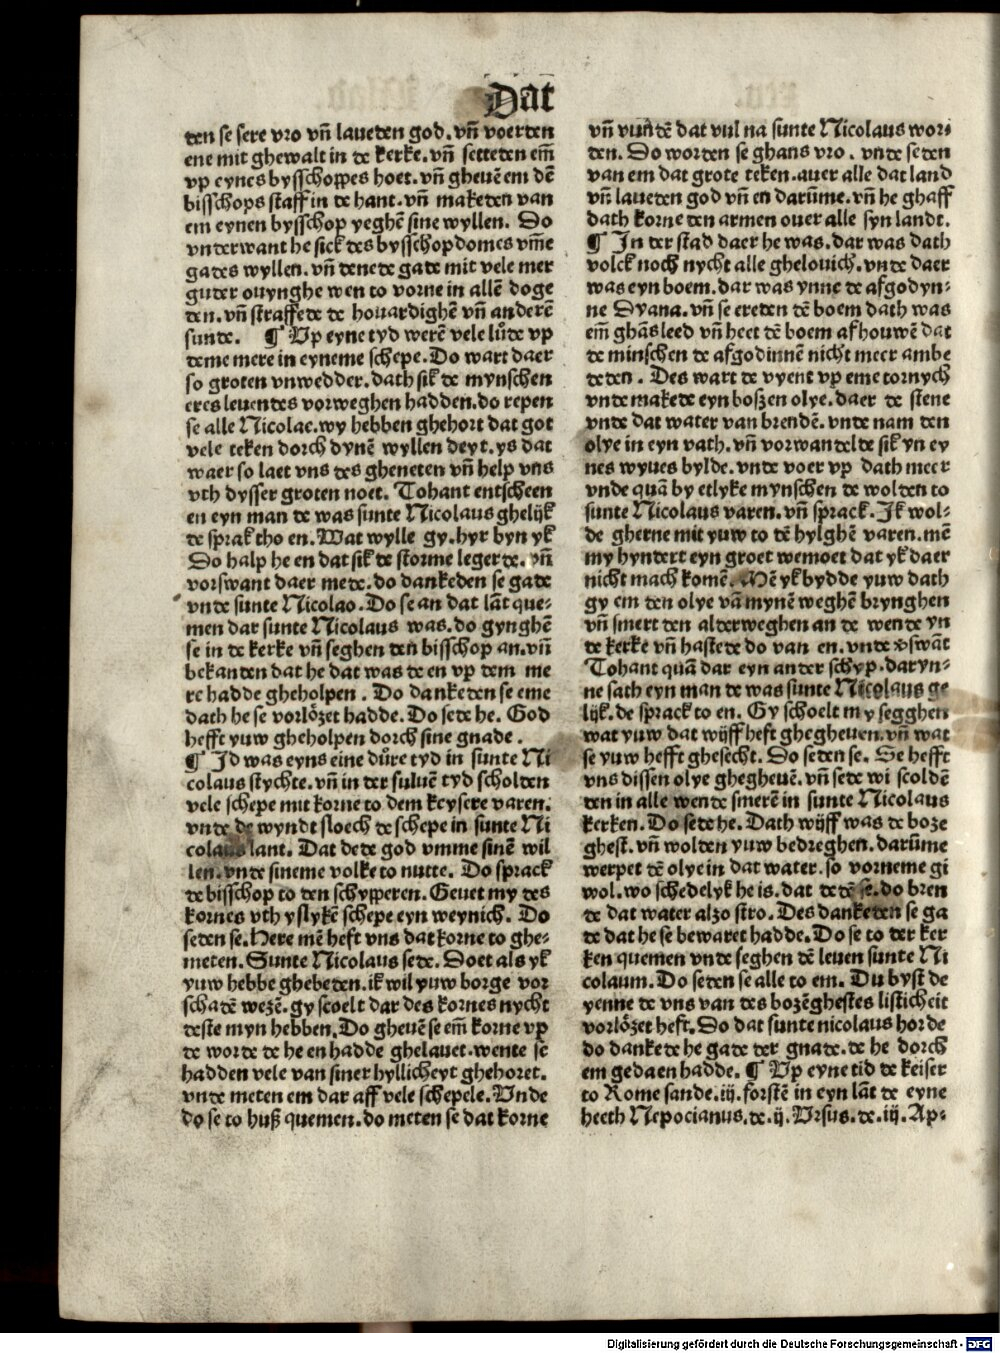 Dat
den se sere vro vn̄ laueden god. vn̄ voerden
ene mit ghewalt in de kerke. vn̄ setteden em̄
vp eynes bysschoppes hoet. vn̄ gheuē em dē
bisschops staff in de hant. vn̄ makeden van
em eynen bysschop yeghē sine wyllen. Do
vnderwant he sick des bysschopdomes vm̄e
gades wyllen. vn̄ denede gade mit vele mer
guder ouynghe wen to vorne in allē doge
den. vn̄ straffede de houardighē vn̄ anderē
sunde. ¶ Vp eyne tyd werē vele lu̇de vp
deme mere in eyneme schepe. Do wart daer
so groten vnwedder. dath sik de mynschen
eres leuendes vorweghen hadden. do repen
se alle Nicolae. wy hebben ghehort dat got
vele teken dorch dynē wyllen deyt. ys dat
waer so laet vns des gheneten vn̄ help vns
vth dysser groten noet. Tohant entscheen
en eyn man de was sunte Nicolaus ghelijk
de sprak tho en. Wat wylle gy. hyr byn yk
Do halp he en dat sik de storme legerde. vn̄
vorswant daer mede. do dankeden se gade
vnde sunte Nicolao. Do se an dat lāt que-
men dar sunte Nicolaus was. do gynghē
se in de kerke vn̄ seghen den bisschop an. vn̄
bekanden dat he dat was de en vp dem me
re hadde gheholpen. Do dankeden se eme
dath he se vorlözet hadde. Do sede he. God
hefft yuw gheholpen dorch sine gnade.
¶ Id was eyns eine du̇re tyd in sunte Ni
colaus stychte. vn̄ in der suluē tyd scholden
vele schepe mit korne to dem keysere varen.
vnde de wyndt sloech de schepe in sunte Ni
colaus lant. Dat dede god vmme sinē wil
len. vnde sineme volke to nutte. Do sprack
de bisschop to den schypperen. Geuet my des
kornes vth yslykē schepe eyn weynich. Do
seden se. Here mē heft vns dat korne to ghe-
meten. Sunte Nicolaus sede. Doet als yk
yuw hebbe ghebeden. ik wil yuw borge vor
schadē wezē. gy scoelt dar des kornes nycht
deste myn hebben. Do gheuē se em̄ korne vp
de worde de he en hadde ghelauet. wente se
hadden vele van siner hyllicheyt ghehoret.
vnde meten em dar aff vele schepele. Vnde
do se to huß quemen. do meten se dat korne
vn̄ vundē dat vul na sunte Nicolaus wor-
den. Do worden se ghans vro. vnde seden
van em dat grote teken. auer alle dat land
vn̄ laueden god vn̄ en darūme. vn̄ he ghaff
dath korne den armen ouer alle syn landt.
¶ In der stad daer he was. dar was dath
volck noch nycht alle ghelouich. vnde daer
was eyn boem. dar was ynne de afgodyn-
ne Dyana. vn̄ se ereden dē boem dath was
em̄ ghās leed vn̄ heet dē boem af houwē dat
de minschen de afgodinnē nicht meer ambe
deden. Des wart de vyent vp eme tornych
vnde makede eyn boßen olye. daer de stene
vnde dat water van brendē. vnde nam den
olye in eyn vath. vn̄ vorwandelde sik yn ey
nes wyues bylde. vnde voer vp dath meer
vnde quā by etlyke mynschen de wolden to
sunte Nicolaus varen. vn̄ sprack. Ik wol-
de gherne mit yuw to dē hylghē varen. mē
my hyndert eyn groet wemoet dat yk daer
nicht mach komē. Mē yk bydde yuw dath
gy em den olye vā mynē weghē brynghen
vn̄ smert den alderweghen an de wende yn
de kerke vn̄ hastede do van en. vnde vswāt
Tohant quā dar eyn ander schyp. daryn-
ne sath eyn man de was sunte Nicolaus ge
lijk. de sprack to en. Gy schoelt my segghen
wat yuw dat wijff heft ghegheuen. vn̄ wat
se yuw hefft ghesecht. Do seden se. Se hefft
vns dissen olye ghegheuē. vn̄ sede wi scoldē
den in alle wende smerē in sunte Nicolaus
kerken. Do sede he. Dath wijff was de boze
ghest. vn̄ wolden yuw bedreghen. darūme
werpet dē olye in dat water. so vorneme gi
wol. wo schedelyk he is. dat dedē se. do bren
de dat water alzo stro. Des dankeden se ga
de dat he se bewaret hadde. Do se to der ker
ken quemen vnde seghen dē leuen sunte Ni
colaum. Do seden se alle to em. Du byst de
yenne de vns van des bozēghestes listicheit
vorlözet heft. Do dat sunte nicolaus horde
do dankede he gade der gnade. de he dorch
em gedaen hadde. ¶ Vp eyne tid de keiser
to Rome sande. iij. forstē in eyn lāt de eyne
heeth Nepocianus. de. ij. Vrsus. de. iij. Ap-
Digitalisierung gefördert durch die Deutsche Forschungsgemeinschaft - DFG